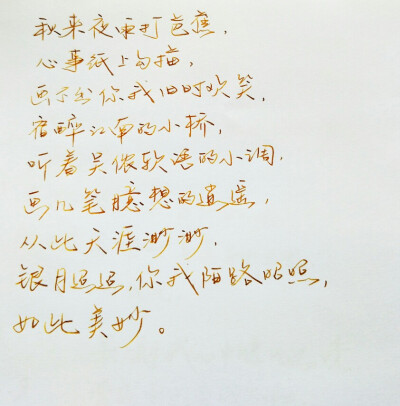 秋来夜雨打芭蕉，
心事纸上勾描，
画不出你我旧时欢笑，
宿醉江南的小桥，
听着吴侬软语的小调，
画几笔臆想的逍遥，
从此天涯渺渺，
银月迢迢，你我陌路昭昭，
如此美妙。